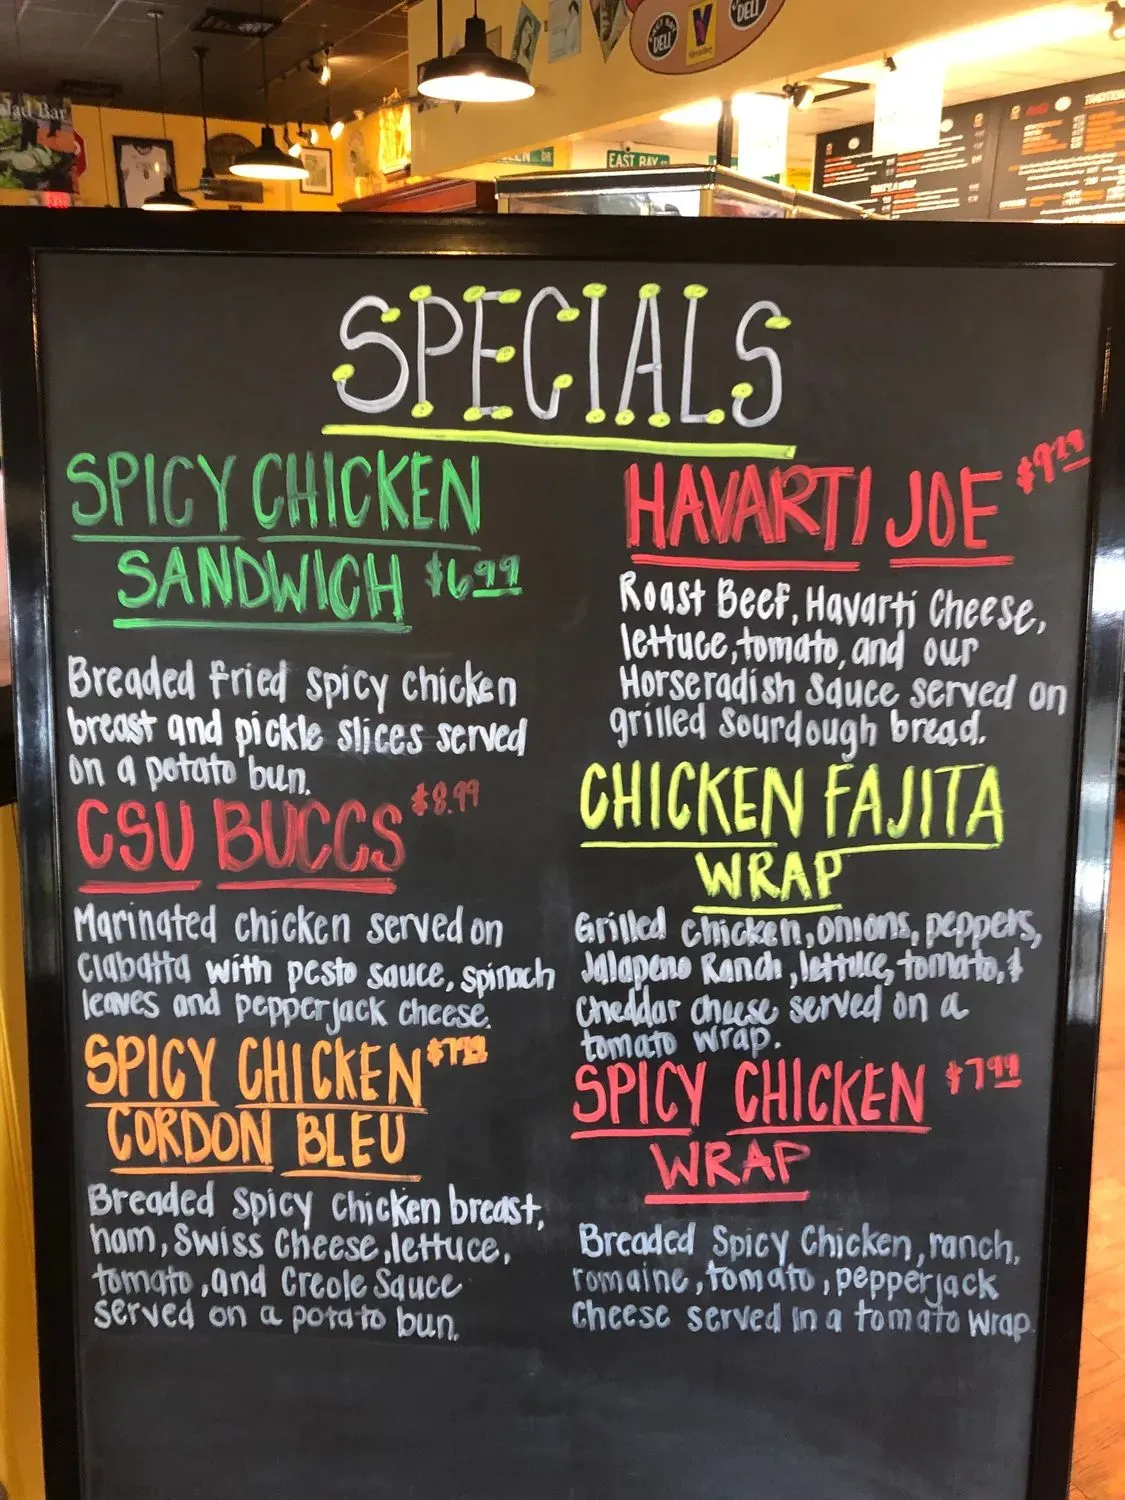 ad Bar
DELI
V
DELI
EEN DR
EAST BAY
SPECIALS
SPICY CHICKEN
SANDWICH $6.99
Breaded fried spicy chicken
breast and pickle slices served
on a potato bun.
CSU BUCCS $8.99
Marinated chicken served on
Ciabatta with pesto sauce, spinach
leaves and pepperjack cheese.
SPICY CHICKEN $7.99
CORDON BLEU
Breaded Spicy Chicken breast,
ham, Swiss Cheese, lettuce,
tomato, and Creole Sauce
served on a potato bun.
HAVARTI JOE
Roast Beef, Havarti Cheese,
lettuce, tomato, and our
Horseradish Sauce served on
grilled Sourdough bread.
CHICKEN FAJITA
WRAP
Grilled chicken, onions, peppers,
Jalapeno Ranch, lettuce, tomato, &
cheddar cheese served on a
tomato wrap.
SPICY CHICKEN $7.99
WRAP
Breaded Spicy Chicken, ranch,
romaine, tomato, pepperjack
Cheese served in a tomato wrap.